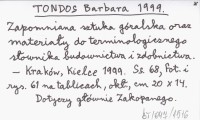 TONDOS Barbara 1999.
Zapomniana sztuka góralska oraz
materiały do terminologicznego
słownika budownictwa i zdobnictwa.
– Kraków, Kielce 1999. Ss. 68, fot. i
rys. 61 na tablicach, okł., cm 20 x 14.
Dotyczy głównie Zakopanego.